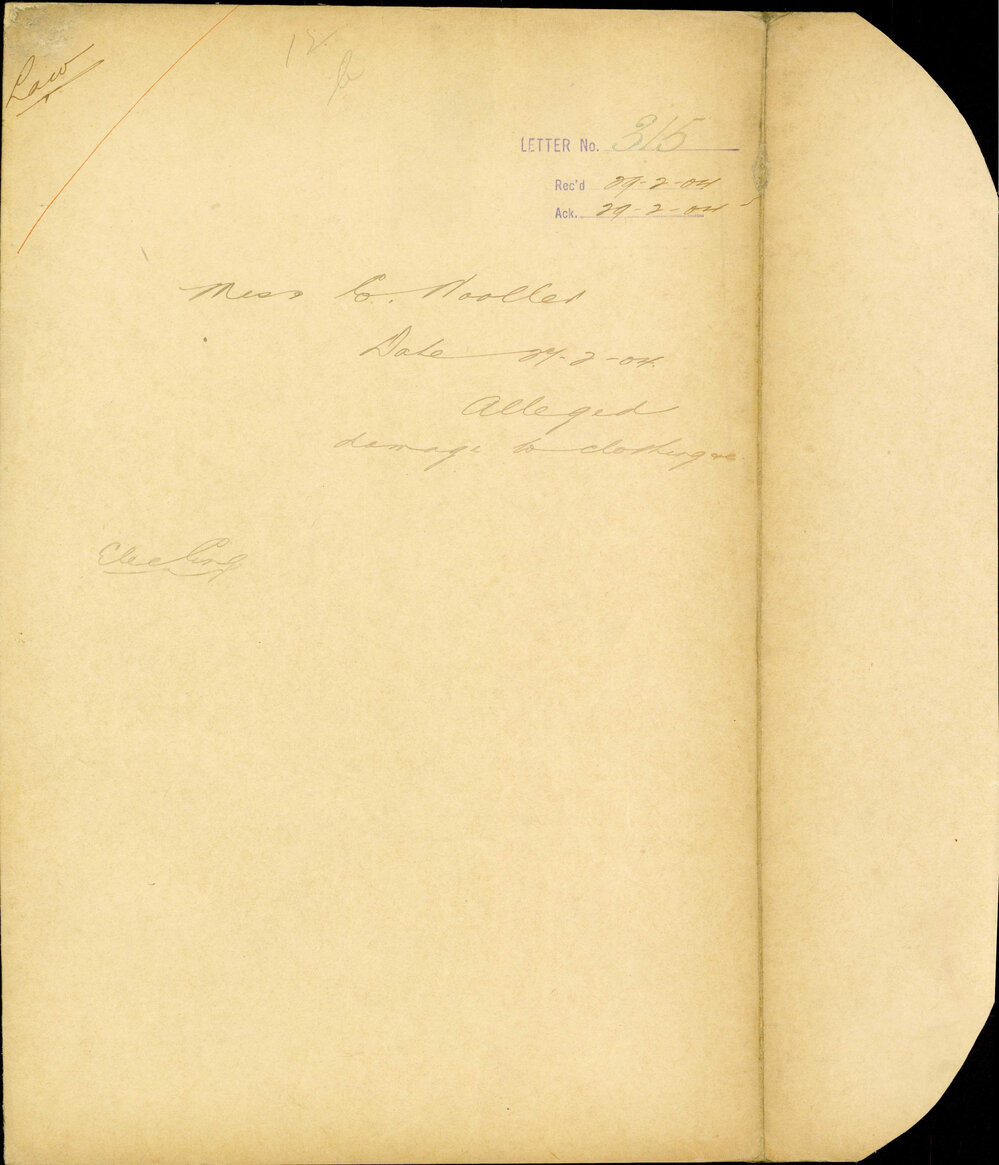 Law
12
LETTER No. 315
Rec'd 29-2-04
Ack. 29-2-04
Miss C.
Date 27-2-04
Alleged
damage to clothing etc.
Elec Eng